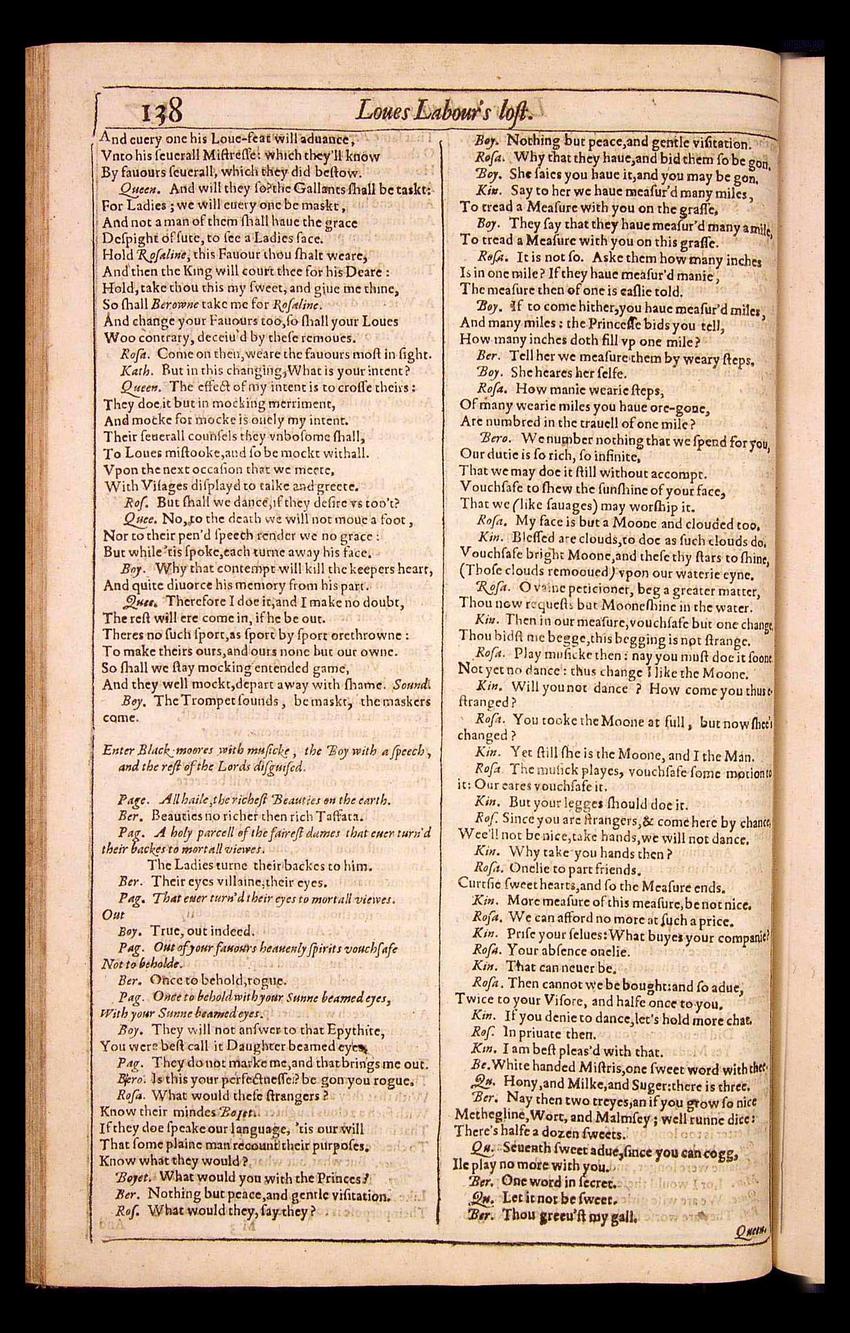 138
Loues Labour's lost.
And euery one his Loue-feat will aduance,
Vnto his seuerall Mistresse: which they'll know
By fauours seuerall, which they did bestow.
Queen. And will they so? the Gallants shall be taskt:
For Ladies; we will euery one be maskt,
And not a man of them shall haue the grace
Despight of sute, to see a Ladies face.
Hold Rosaline, this Fauour thou shalt weare,
And then the King will court thee for his Deare:
Hold, take thou this my sweet, and giue me thine,
So shall Berowne take me for Rosaline.
And change your Fauours too, so shall your Loues
Woo contrary, deceiu'd by these remoues.
Rosa. Come on then, weare the fauours most in sight.
Kath. But in this changing, What is your intent?
Queen. The effect of my intent is to crosse theirs:
They doe it but in mocking merriment,
And mocke for mocke is onely my intent.
Their seuerall counsels they vnbosome shall,
To Loues mistooke, and so be mockt withall.
Vpon the next occasion that we meete,
With Visages displayd to talke and greete.
Ros. But shall we dance, if they desire vs too't?
Quee. No, to the death we will not moue a foot,
Nor to their pen'd speech render we no grace:
But while 'tis spoke, each turne away his face.
Boy. Why that contempt will kill the keepers heart,
And quite diuorce his memory from his part.
Quee. Therefore I doe it, and I make no doubt,
The rest will ere come in, if he be out.
Theres no such sport, as sport by sport orethrowne:
To make theirs ours, and ours none but our owne.
So shall we stay mocking entended game,
And they well mockt, depart away with shame. Sound.
Boy. The Trompet sounds, be maskt, the maskers
come.
Enter Black moores with musicke, the Boy with a speech,
and the rest of the Lords disguised.
Page. All haile, the richest Beauties on the earth.
Ber. Beauties no richer then rich Taffata.
Pag. A holy parcell of the fairest dames that euer turn'd
their backes to mortall viewes.
The Ladies turne their backes to him.
Ber. Their eyes villaine, their eyes.
Pag. That euer turn'd their eyes to mortall viewes.
Out
Boy. True, out indeed.
Pag. Out of your fauours heauenly spirits vouchsafe
Not to beholde.
Ber. Once to behold, rogue.
Pag. Once to behold with your Sunne beamed eyes,
With your Sunne beamed eyes.
Boy. They will not answer to that Epythite,
You were best call it Daughter beamed eyes.
Pag. They do not marke me, and that brings me out.
Bero. Is this your perfectnesse? be gon you rogue.
Rosa. What would these strangers?
Know their mindes Boyet.
If they doe speake our language, 'tis our will
That some plaine man recount their purposes.
Know what they would?
Boyet. What would you with the Princes?
Ber. Nothing but peace, and gentle visitation.
Ros. What would they, say they?
Boy. Nothing but peace, and gentle visitation.
Rosa. Why that they haue, and bid them so be gon.
Boy. She saies you haue it, and you may be gon.
Kin. Say to her we haue measur'd many miles,
To tread a Measure with you on the grasse.
Boy. They say that they haue measur'd many a mile,
To tread a Measure with you on this grasse.
Rosa. It is not so. Aske them how many inches
Is in one mile? If they haue measur'd manie,
The measure then of one is easlie told.
Boy. If to come hither, you haue measur'd miles,
And many miles: the Princesse bids you tell,
How many inches doth fill vp one mile?
Ber. Tell her we measure them by weary steps.
Boy. She heares her selfe.
Rosa. How manie wearie steps,
Of many wearie miles you haue ore-gone,
Are numbred in the trauell of one mile?
Bero. We number nothing that we spend for you,
Our dutie is so rich, so infinite,
That we may doe it still without accompt.
Vouchsafe to shew the sunshine of your face,
That we (like sauages) may worship it.
Rosa. My face is but a Moone and clouded too.
Kin. Blessed are clouds, to doe as such clouds do.
Vouchsafe bright Moone, and these thy stars to shine,
(Those clouds remooued) vpon our waterie eyne.
Rosa. O vaine peticioner, beg a greater matter,
Thou now requests but Mooneshine in the water.
Kin. Then in our measure, vouchsafe but one change.
Thou bidst me begge, this begging is not strange.
Rosa. Play musicke then: nay you must doe it soone
Not yet no dance: thus change I like the Moone.
Kin. Will you not dance? How come you thus e-
stranged?
Rosa. You tooke the Moone at full, but now shee's
changed?
Kin. Yet still she is the Moone, and I the Man.
Rosa. The musick playes, vouchsafe some motion to
it: Our eares vouchsafe it.
Kin. But your legges should doe it.
Ros. Since you are strangers, & come here by chance,
Wee'll not be nice, take hands, we will not dance.
Kin. Why take you hands then?
Rosa. Onelie to part friends.
Curtsie sweet hearts, and so the Measure ends.
Kin. More measure of this measure, be not nice.
Rosa. We can afford no more at such a price.
Kin. Prise your selues: What buyes your companie?
Rosa. Your absence onelie.
Kin. That can neuer be.
Rosa. Then cannot we be bought: and so adue,
Twice to your Visore, and halfe once to you.
Kin. If you denie to dance, let's hold more chat.
Ros. In priuate then.
Kin. I am best pleas'd with that.
Be. White handed Mistris, one sweet word with thee.
Qu. Hony, and Milke, and Suger: there is three.
Ber. Nay then two treyes, an if you grow so nice
Methegline, Wort, and Malmsey; well runne dice:
There's halfe a dozen sweets.
Qu. Seuenth sweet adue, since you can cogg,
Ile play no more with you.
Ber. One word in secret.
Qu. Let it not be sweet.
Ber. Thou greeu'st my gall.
Queen.